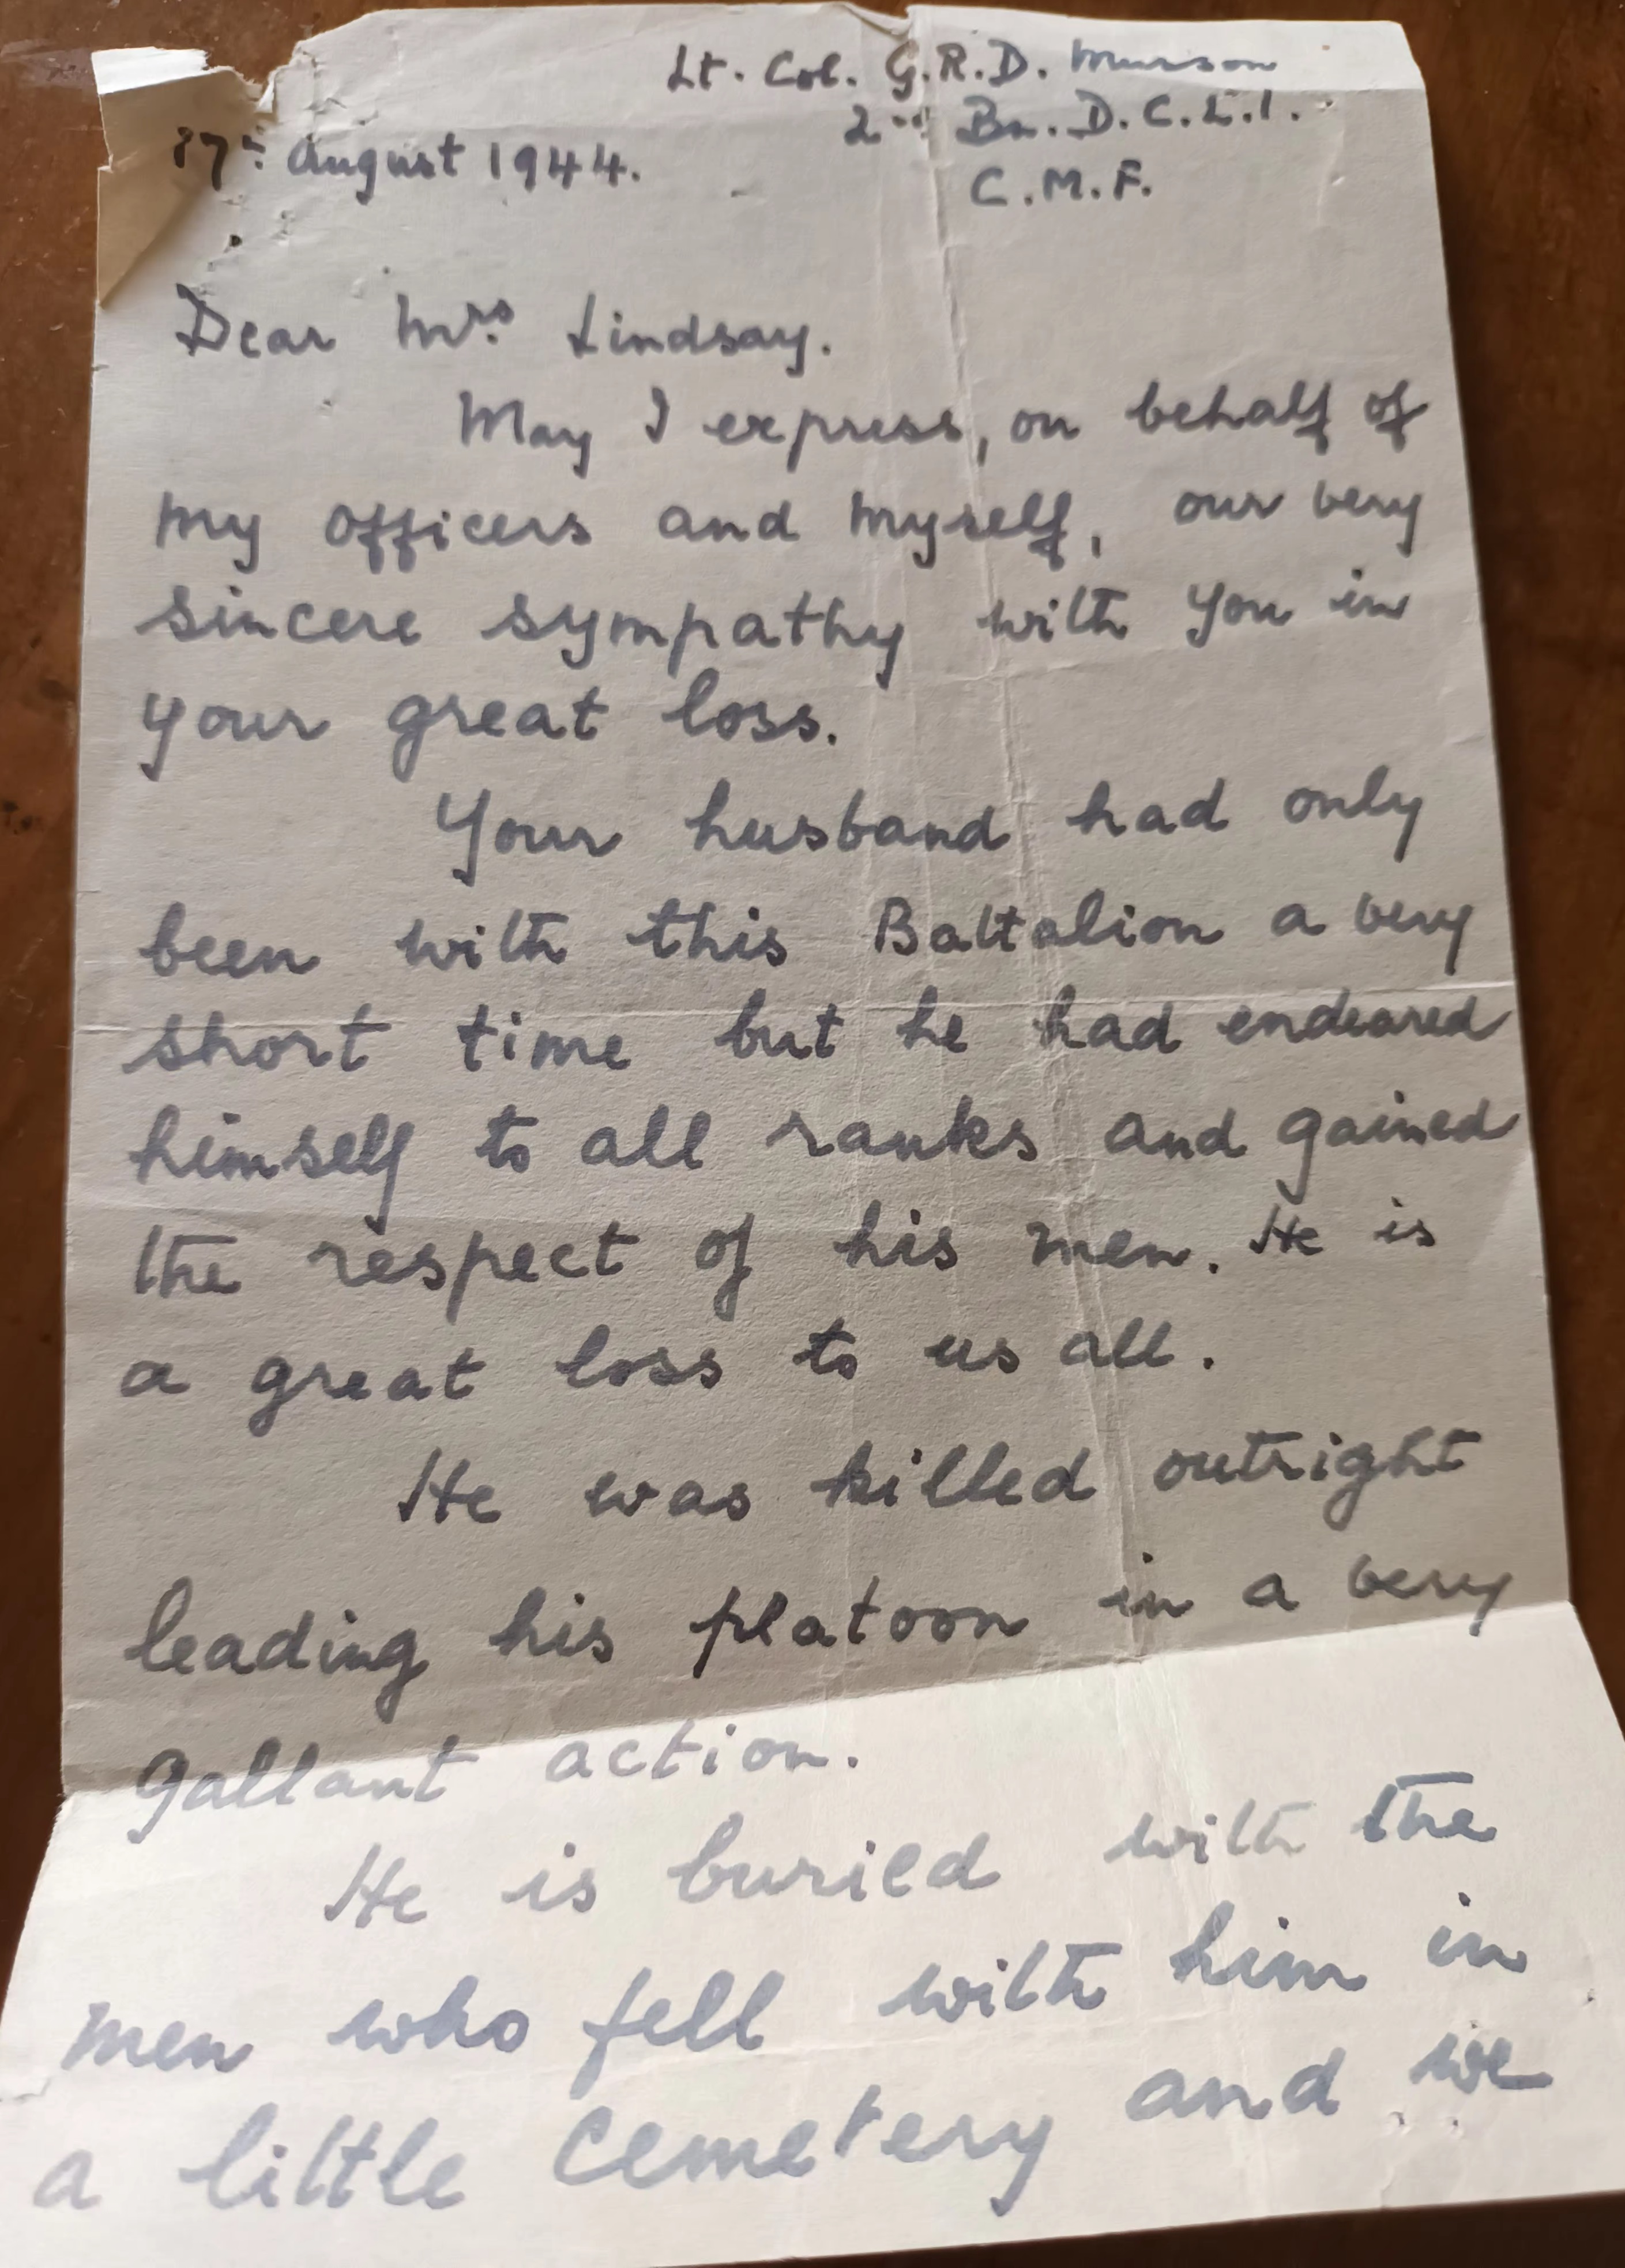 Lt. Col. G.R.D. Musson
2nd Bn. D.C.L.I.
17th August 1944.
C.M.F.
Dear Mrs Lindsay.
May I express, on behalf of
my officers and myself, our very
sincere sympathy with you in
your great loss.
Your husband had only
been with this Battalion a very
short time but he had endeared
himself to all ranks and gained
the respect of his men. He is
a great loss to us all.
He was killed outright
leading his platoon in a very
gallant action.
He is buried with the
men who fell with him in
a little cemetery and we